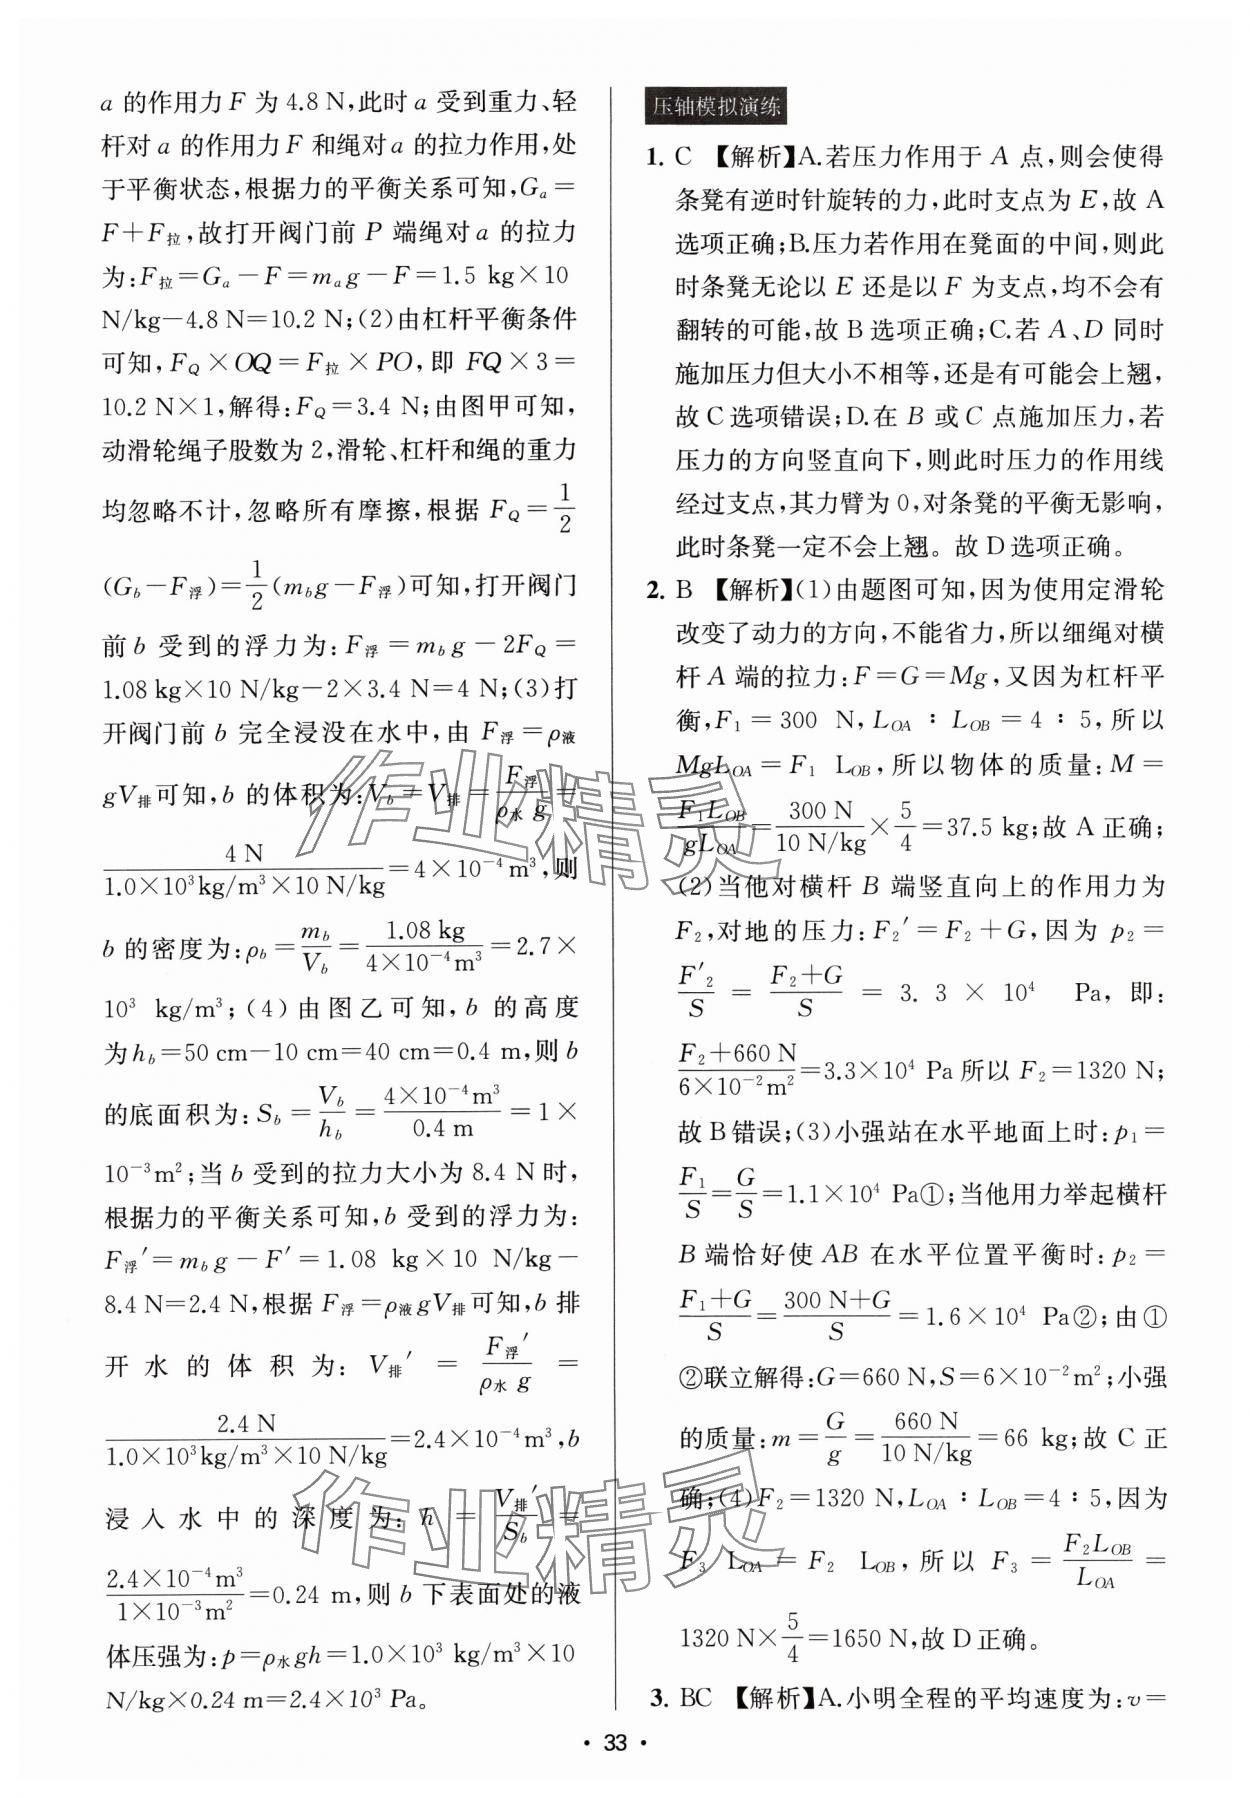 a 的作用力 F 为 4.8 N,此时 a 受到重力、轻
杆对 a 的作用力 F 和绳对 a 的拉力作用,处
于平衡状态,根据力的平衡关系可知,Gₐ=
F+F拉,故打开阀门前 P 端绳对 a 的拉力
为:F拉=Gₐ-F=mₐg-F=1.5 kg×10
N/kg-4.8 N=10.2 N;(2)由杠杆平衡条件
可知,F_Q×OQ=F拉×PO,即 FQ×3=
10.2 N×1,解得:F_Q=3.4 N;由图甲可知,
动滑轮绳子股数为 2,滑轮、杠杆和绳的重力
均忽略不计,忽略所有摩擦,根据 F_Q=1/2
(G_b-F浮)=1/2(m_bg-F浮)可知,打开阀门
前 b 受到的浮力为:F浮=m_bg-2F_Q=
1.08 kg×10 N/kg-2×3.4 N=4 N;(3)打
开阀门前 b 完全浸没在水中,由 F浮=ρ液
gV排可知,b 的体积为:V_b=V排=F浮/(ρ水 g)=
4 N/(1.0×10³kg/m³×10 N/kg)=4×10⁻⁴m³,则
b 的密度为:ρ_b=m_b/V_b=1.08 kg/(4×10⁻⁴m³)=2.7×
10³ kg/m³;(4)由图乙可知,b 的高度
为h_b=50 cm-10 cm=40 cm=0.4 m,则 b
的底面积为:S_b=V_b/h_b=4×10⁻⁴m³/0.4 m=1×
10⁻³m²;当 b 受到的拉力大小为 8.4 N时,
根据力的平衡关系可知,b 受到的浮力为:
F浮′=m_bg-F′=1.08 kg×10 N/kg-
8.4 N=2.4 N,根据 F浮=ρ液gV排可知,b 排
开水的体积为:V排′=F浮′/(ρ水 g)=
2.4 N/(1.0×10³kg/m³×10 N/kg)=2.4×10⁻⁴m³,b
浸入水中的深度为:h=V排′/S_b=
2.4×10⁻⁴m³/(1×10⁻³m²)=0.24 m,则 b 下表面处的液
体压强为:p=ρ水gh=1.0×10³ kg/m³×10
N/kg×0.24 m=2.4×10³ Pa。
压轴模拟演练
1. C 【解析】A.若压力作用于 A 点,则会使得
条凳有逆时针旋转的力,此时支点为 E,故 A
选项正确;B.压力若作用在凳面的中间,则此
时条凳无论以 E 还是以 F 为支点,均不会有
翻转的可能,故 B 选项正确;C.若 A、D 同时
施加压力但大小不相等,还是有可能会上翘,
故 C 选项错误;D.在 B 或 C 点施加压力,若
压力的方向竖直向下,则此时压力的作用线
经过支点,其力臂为 0,对条凳的平衡无影响,
此时条凳一定不会上翘。故 D 选项正确。
2. B 【解析】(1)由题图可知,因为使用定滑轮
改变了动力的方向,不能省力,所以细绳对横
杆 A 端的拉力:F=G=Mg,又因为杠杆平
衡,F₁=300 N,L_OA:L_OB=4:5,所以
MgL_OA=F₁ L_OB,所以物体的质量:M=
F₁L_OB/gL_OA=300 N/(10 N/kg)×5/4=37.5 kg;故 A 正确;
(2)当他对横杆 B 端竖直向上的作用力为
F₂,对地的压力:F₂′=F₂+G,因为 p₂=
F′₂/S=(F₂+G)/S=3.3×10⁴ Pa,即:
(F₂+660 N)/(6×10⁻²m²)=3.3×10⁴ Pa 所以 F₂=1320 N;
故 B 错误;(3)小强站在水平地面上时:p₁=
F₁/S=G/S=1.1×10⁴ Pa①;当他用力举起横杆
B 端恰好使 AB 在水平位置平衡时:p₂=
(F₁+G)/S=(300 N+G)/S=1.6×10⁴ Pa②;由①
②联立解得:G=660 N,S=6×10⁻²m²;小强
的质量:m=G/g=660 N/(10 N/kg)=66 kg;故 C 正
确;(4)F₂=1320 N,L_OA:L_OB=4:5,因为
F₃ L_OA=F₂ L_OB,所以 F₃=F₂L_OB/L_OA=
1320 N×5/4=1650 N,故 D 正确。
3. BC 【解析】A.小明全程的平均速度为:v=
• 33 •
作业精灵
作业精灵